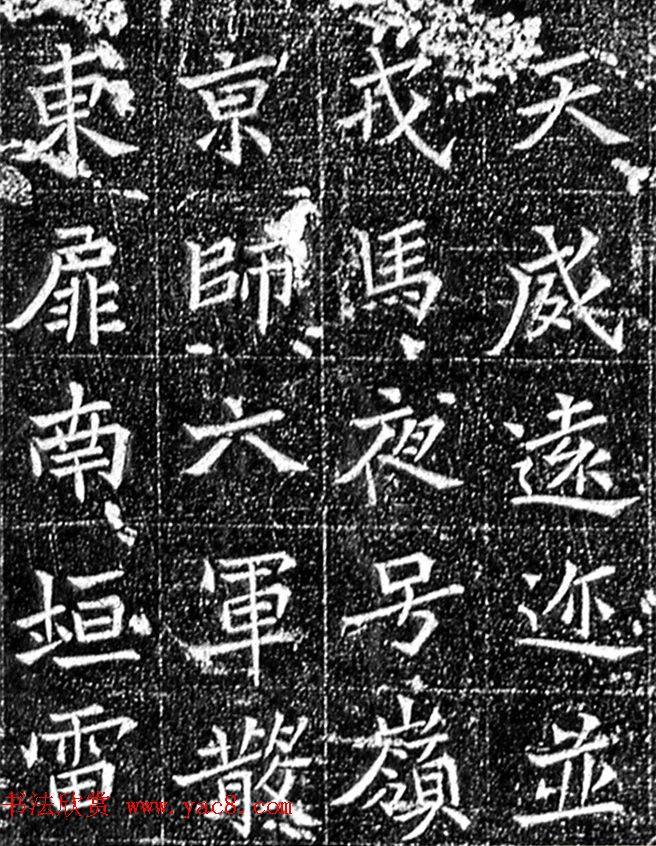 天威遠迩並
戎馬夜号嶺
亰師六軍
東扉南垣雷
书法欣赏 www.yac8.com